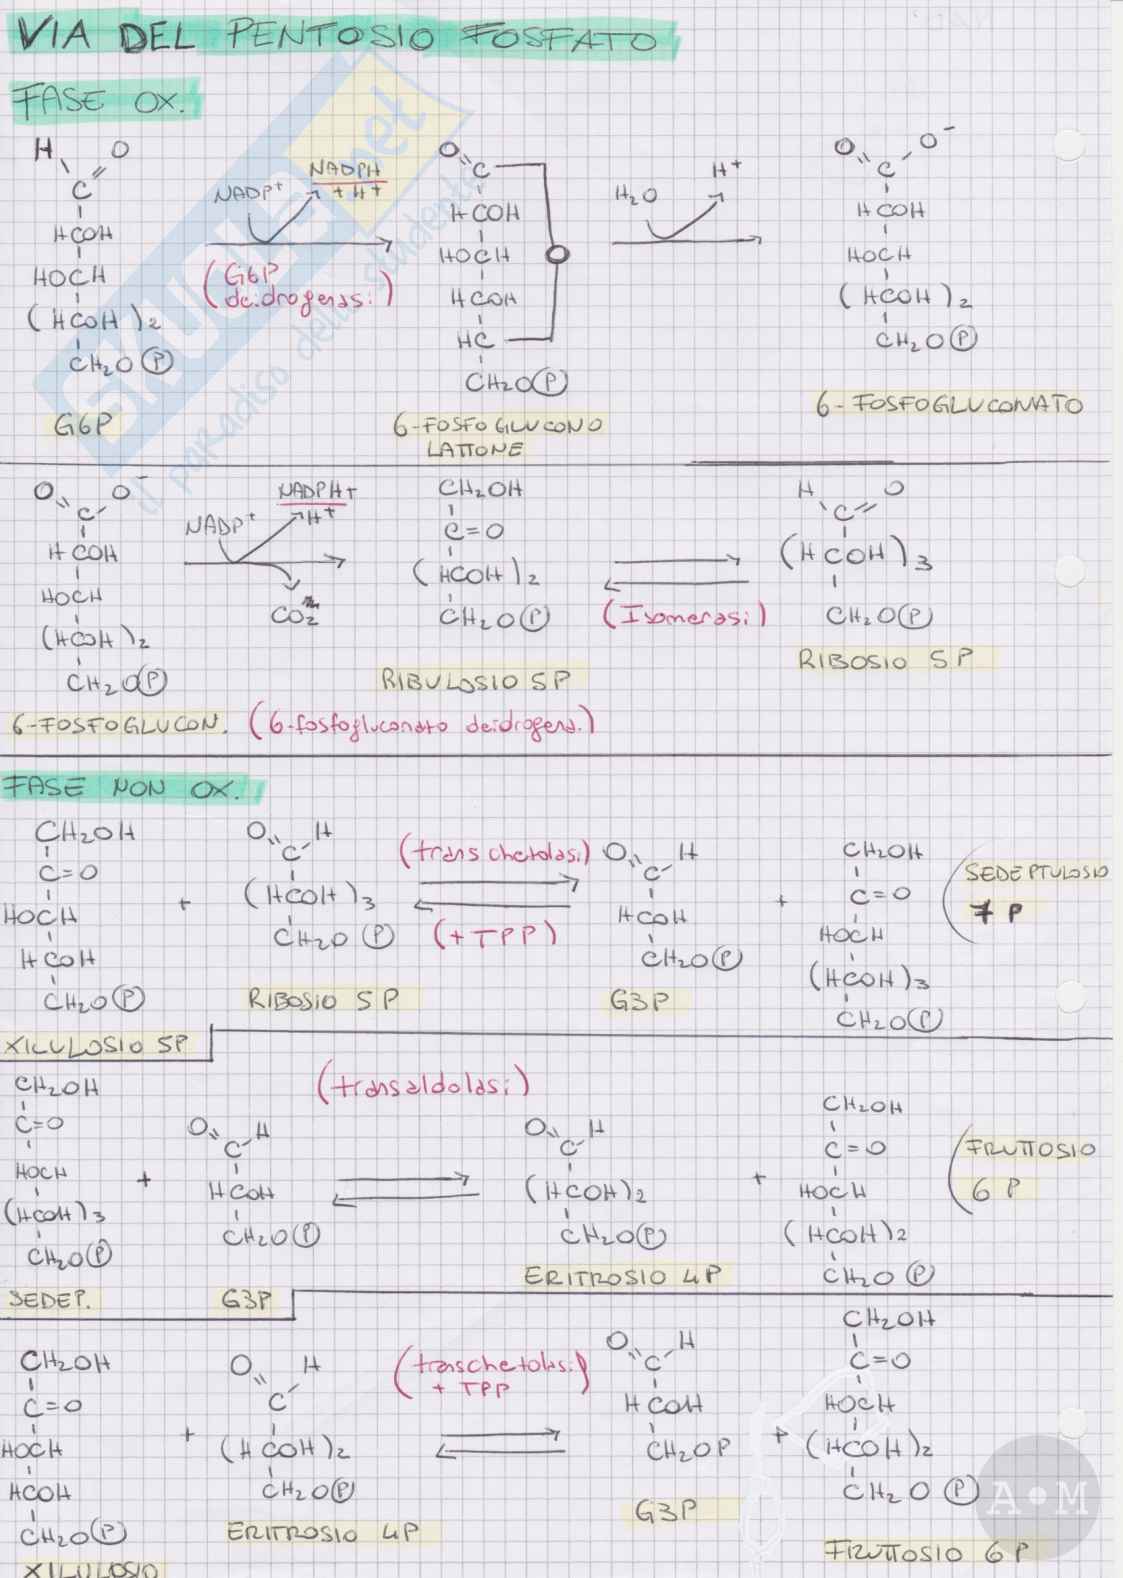 VIA DEL PENTOSIO FOSFATO
FASE OX.
H O
C
HCOH
HOCH
(HCOH)2
CH2O(P)
G6P
NADP+ NADPH + H+
(G6P deidrogenasi)
O C
HCOH
HOCH
HCOH
HC
O
CH2O(P)
6-FOSFOGLUCONO
LATTONE
H2O H+
O O-
C
HCOH
HOCH
(HCOH)2
CH2O(P)
6-FOSFOGLUCONATO
O O-
C
HCOH
HOCH
(HCOH)2
CH2O(P)
6-FOSFOGLUCON. (6-fosfogluconato deidrogena.)
NADP+ NADPH+ H+
CO2
CH2OH
C=O
(HCOH)2
CH2O(P)
RIBULOSIO 5P
(Isomerasi)
H O
C
(HCOH)3
CH2O(P)
RIBOSIO 5P
FASE NON OX.
CH2OH
C=O
HOCH
HCOH
CH2O(P)
XILULOSIO 5P
+
O H
C
(HCOH)3
CH2O(P)
RIBOSIO 5P
(transchetolasi)
(+TPP)
O H
C
HCOH
CH2O(P)
G3P
+
CH2OH
C=O
HOCH
(HCOH)3
CH2O(P)
SEDEPTULOSIO
7P
CH2OH
C=O
HOCH
(HCOH)3
CH2O(P)
SEDEP.
+
O H
C
HCOH
CH2O(P)
G3P
(transaldolasi)
O H
C
(HCOH)2
CH2O(P)
ERITROSIO 4P
+
CH2OH
C=O
HOCH
(HCOH)2
CH2O(P)
FRUTTOSIO
6P
CH2OH
C=O
HOCH
HCOH
CH2O(P)
XILULOSIO
+
O H
C
(HCOH)2
CH2O(P)
ERITROSIO 4P
(transchetolasi)
+ TPP
O H
C
HCOH
CH2OP
G3P
+
CH2OH
C=O
HOCH
(HCOH)2
CH2O(P)
FRUTTOSIO 6P
SKUOLA.net
il paradiso dello studente
A•M